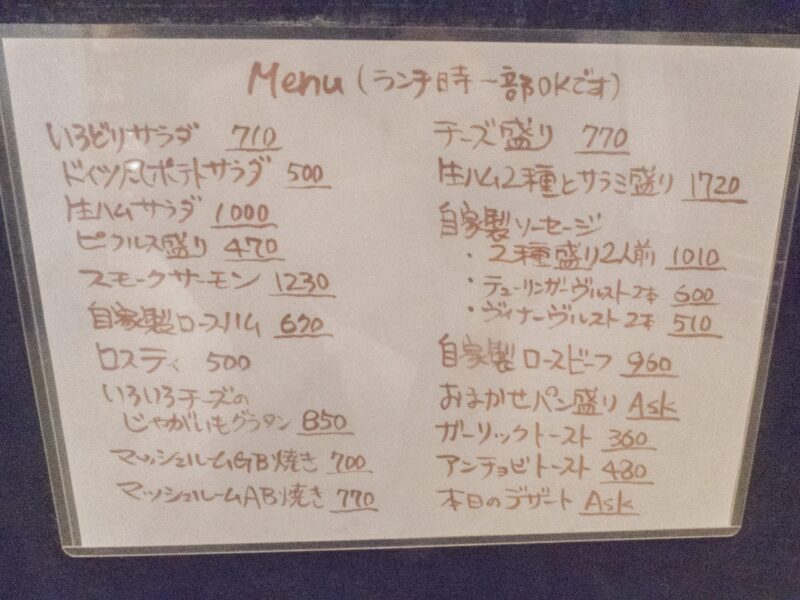 Menu (ランチ時一部OKです)
いろどりサラダ 710
ドイツ風ポテトサラダ 500
生ハムサラダ 1000
ピクルス盛り 470
スモークサーモン 1230
自家製ロースハム 670
ロスティ 500
いろいろチーズの
じゃがいもグラタン 850
マッシュルームGB焼き 700
マッシュルームAB焼き 770
チーズ盛り 770
生ハム2種とサラミ盛り 1720
自家製ソーセージ
・2種盛り2人前 1010
・テューリンガーヴルスト2本 600
・ヴィナーヴルスト2本 510
自家製ロースビーフ 960
おまかせパン盛り Ask
ガーリックトースト 360
アンチョビトースト 480
本日のデザート Ask